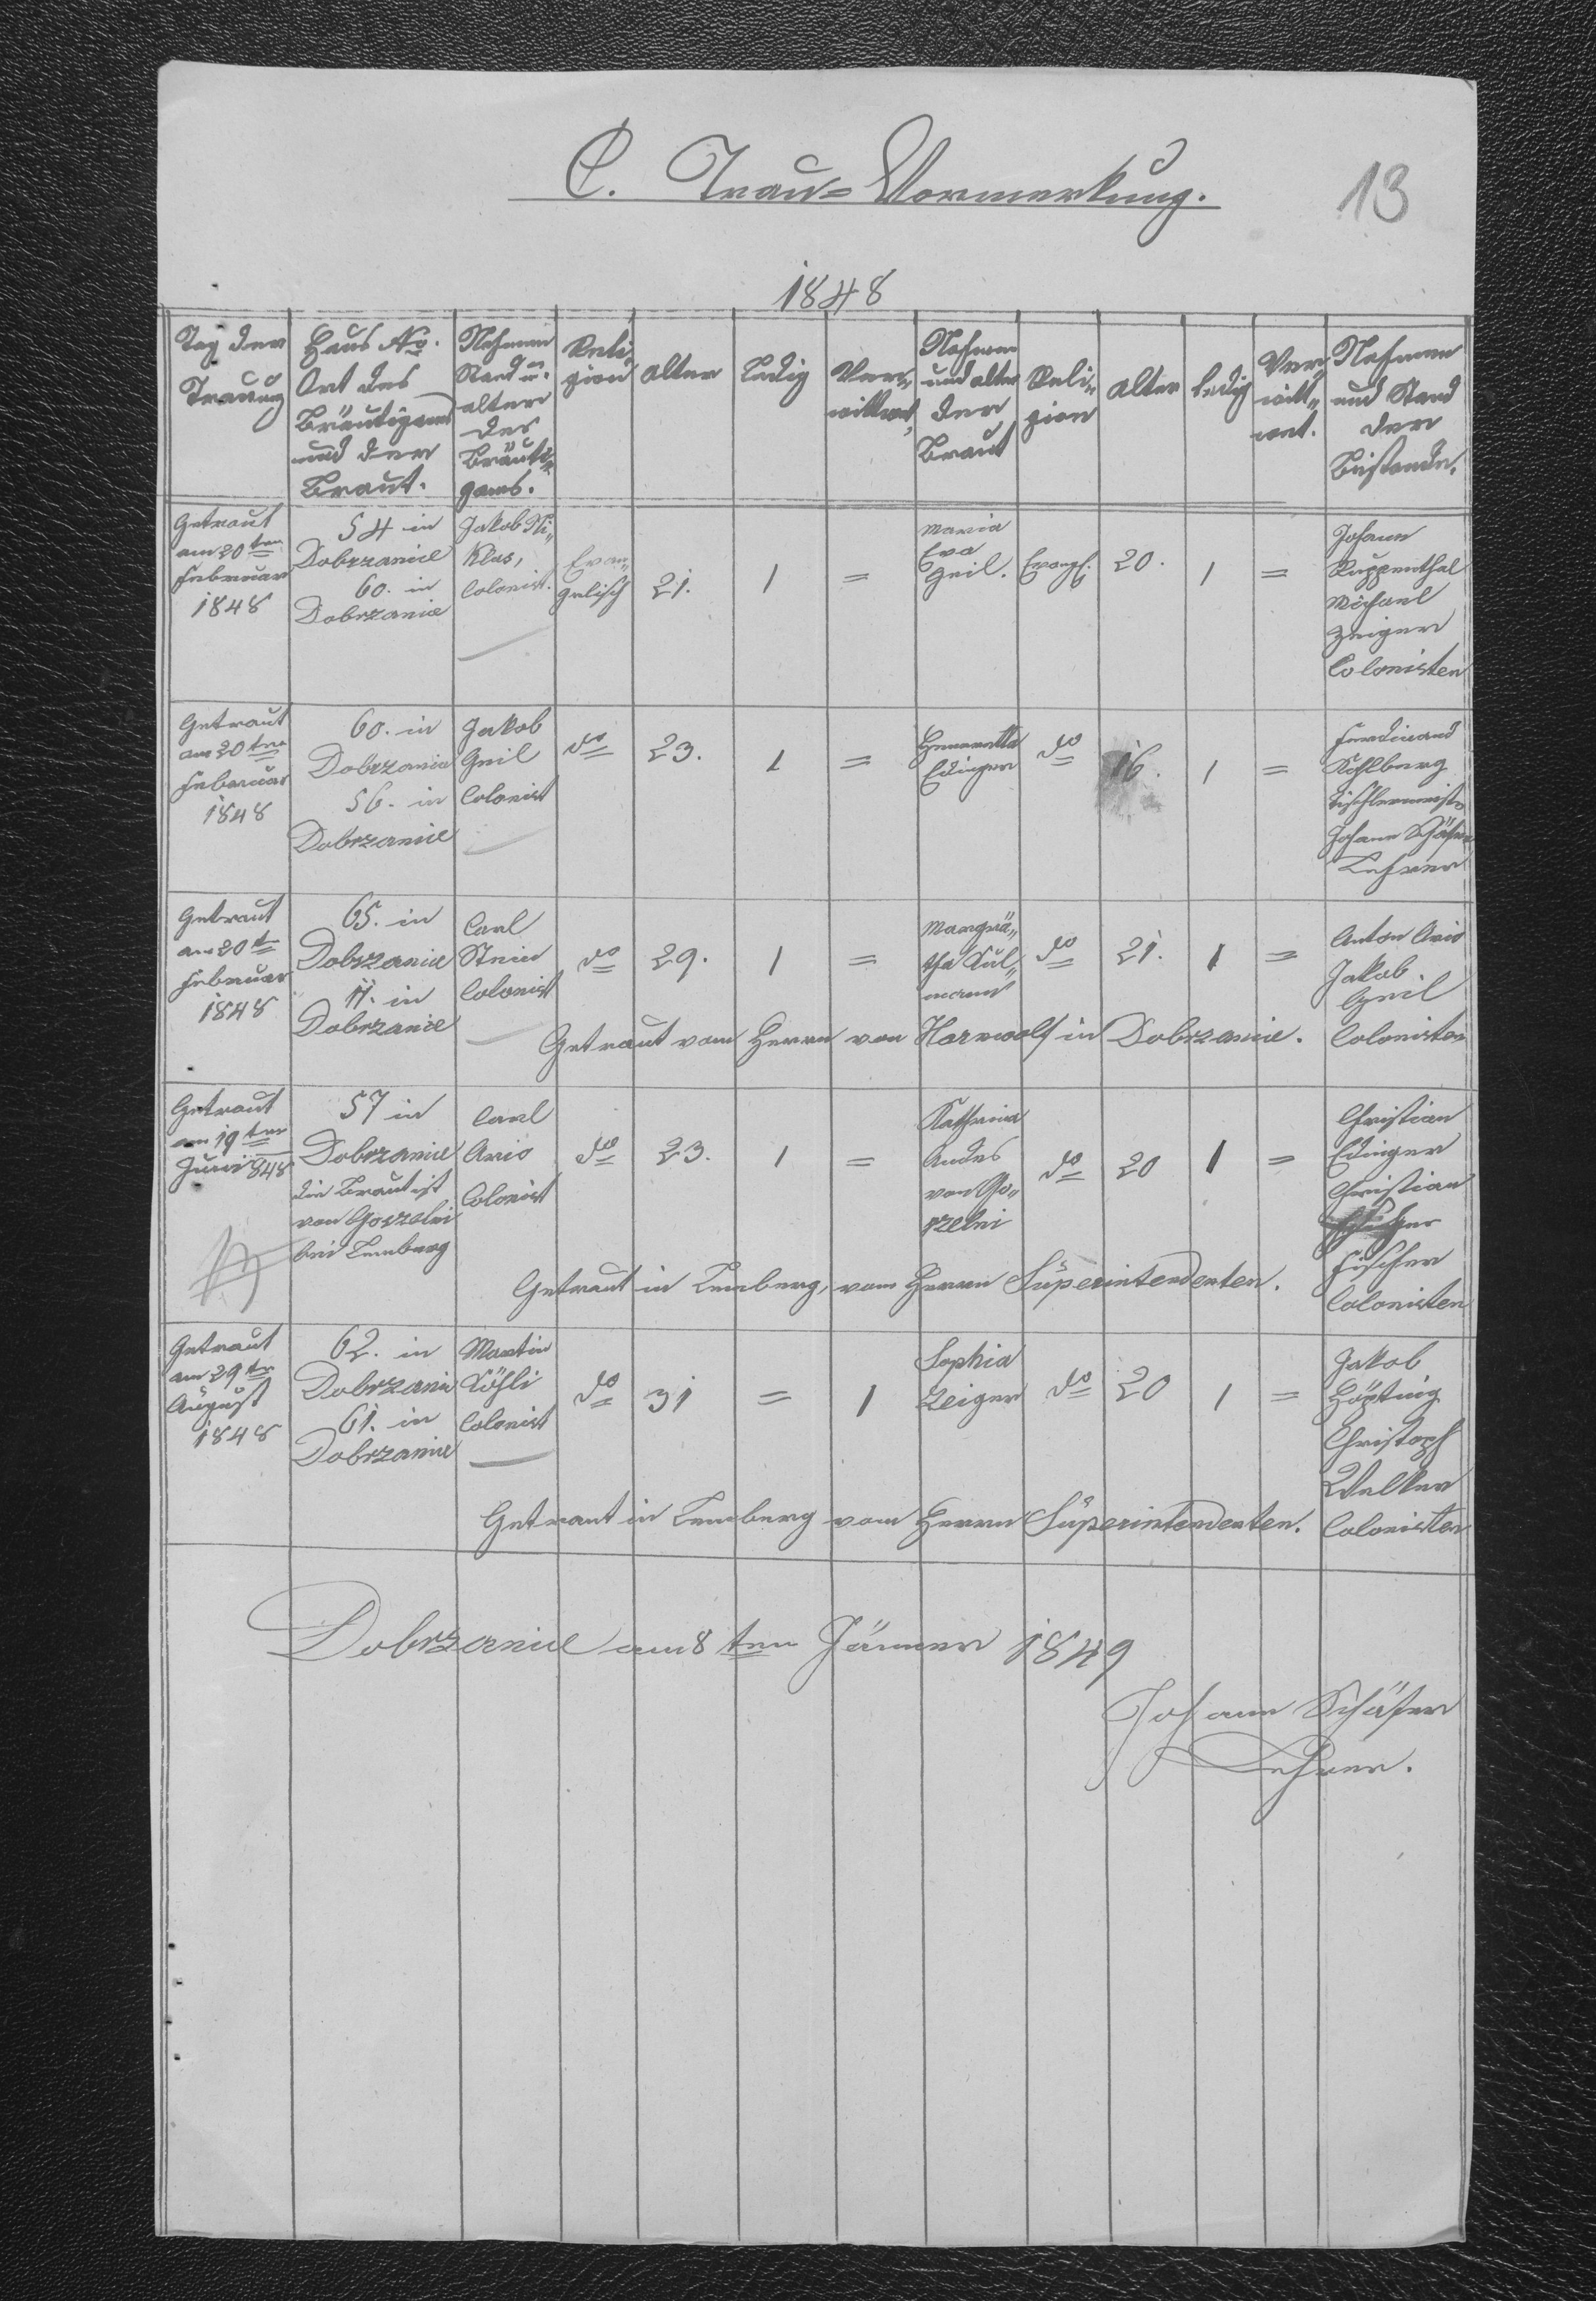 C. Trau=Vormerkung.
13
1848
Tag der Trauung
Haus No. Ort des Bräutigams und der Braut.
Nahmen Stand u. alter des Bräuti„gams.
Reli„gion
alter
Ledig
Ver„wittwet,
Nahmen und alter der Braut
Reli„gion
alter
ledig
Ver„witt„wet.
Nahmen und Stand der Beistande.
Getraut
am 20ten
Februar
1848
54 in
Dobrzanice
60. in
Dobrzanice
Jakob Ni„
klas,
Colonist.
Evan„
gelisch
21.
1
=
Maria
Eva
Geil.
Evangl.
20.
1
=
Johann
Ruppenthal
Michael
Zeiger
Colonisten
Getraut
am 20ten
Februar
1848
60. in
Dobrzanice
56. in
Dobrzanice
Jakob
Geil
Colonist
do
23.
1
=
Henrietta
Edinger
do
16.
1
=
Ferdinand
Kohlberg
Tischlermeister
Johann Schäfer
Lehrer
Getraut
am 20t
Februar
1848
65. in
Dobrzanice
11. in
Dobrzanice
Carl
Stein
Colonist
do
29.
1
=
Margrä„
tha Kul„
mann
do
21.
1
=
Anton Ario
Jakob
Geil
Colonisten
Getraut vom Herrn von Harnwolf in Dobrzanice.
Getraut
am 19ten
Juni 848
57 in
Dobrzanice
die Braut ist
von Goszelni
bei Lemberg
Carl
Ario
Colonist
do
23.
1
=
Katharina
Andes
von Go„
szelni
do
20
1
=
Christian
Edinger
Christian
Fischer
Colonisten
Getraut in Lemberg, vom Herrn Superintendenten.
Getraut
am 29tn
August
1848
62. in
Dobrzanice
61. in
Dobrzanice
Martin
Köhli
Colonist
do
31
=
1
Sophia
Zeiger
do
20
1
=
Jakob
Höpting
Christoph
Welker
Colonisten
Getraut in Lemberg vom Herrn Superintendenten.
Dobrzanice am 8ten Jänner 1849
Johann Schäfer
Lehrer.